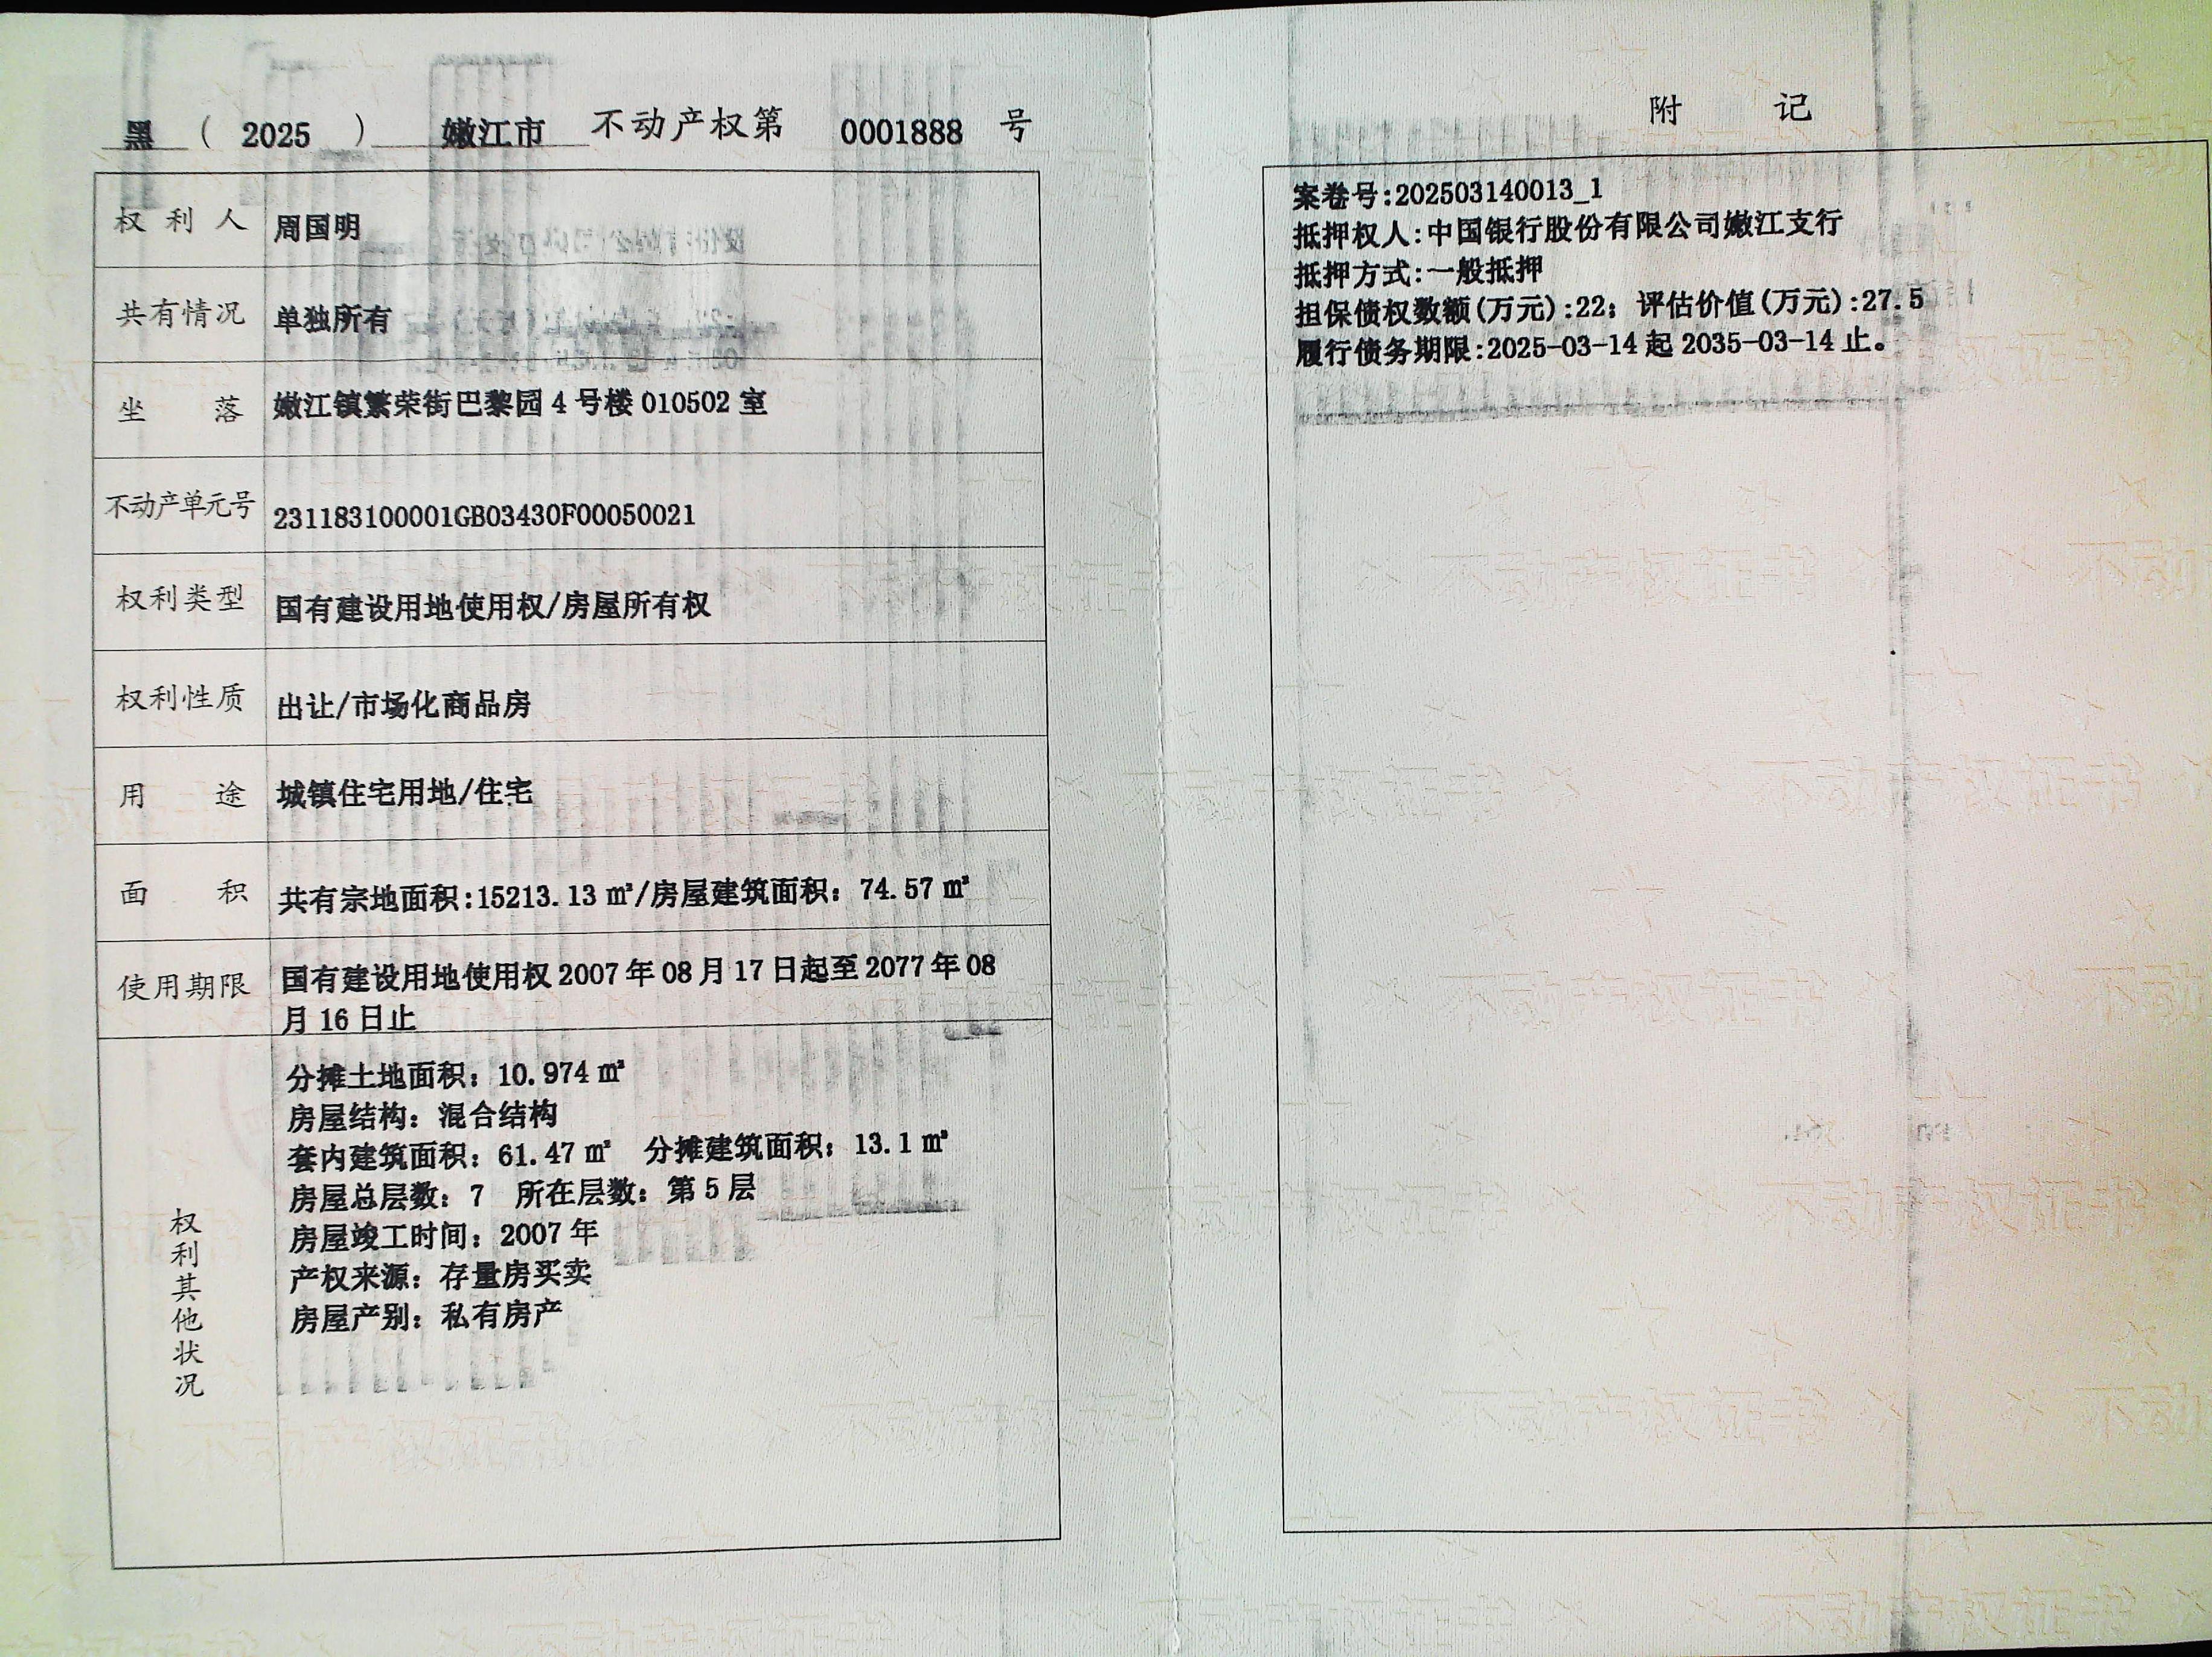 黑（2025）嫩江市 不动产权第 0001888 号
权利人 周国明
共有情况 单独所有
坐落 嫩江镇繁荣街巴黎园 4 号楼 010502 室
不动产单元号 231183100001GB03430F00050021
权利类型 国有建设用地使用权/房屋所有权
权利性质 出让/市场化商品房
用途 城镇住宅用地/住宅
面积 共有宗地面积:15213.13 ㎡/房屋建筑面积：74.57 ㎡
使用期限 国有建设用地使用权 2007 年 08 月 17 日起至 2077 年 08
月 16 日止
权利其他状况
分摊土地面积：10.974 ㎡
房屋结构：混合结构
套内建筑面积：61.47 ㎡ 分摊建筑面积：13.1 ㎡
房屋总层数：7 所在层数：第 5 层
房屋竣工时间：2007 年
产权来源：存量房买卖
房屋产别：私有房产
附记
案卷号:202503140013_1
抵押权人:中国银行股份有限公司嫩江支行
抵押方式:一般抵押
担保债权数额(万元):22；评估价值(万元):27.5
履行债务期限:2025-03-14 起 2035-03-14 止。